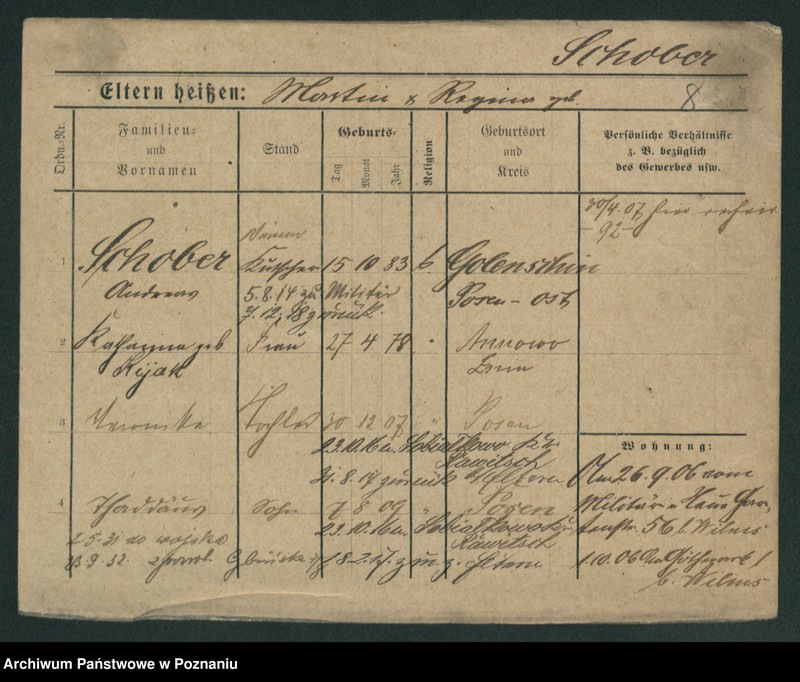 Schober
Eltern heißen: Martin & Regina geb.
8
Ordn.-Nr.
Familien-
und
Vornamen
Stand
Geburts-
Tag
Monat
Jahr
Religion
Geburtsort
und
Kreis
Persönliche Verhältnisse
z. B. bezüglich
des Gewerbes usw.
30/4. 07
- 92 -
1 Schober Kutscher 15 10 83 k. Golenschin
Andreas 5.8.14 zu Militär Posen - Ost
7.12.18 zurück.
2 Katharina geb. Frau 27 4 78 Annowo
Kijak
3 Veronika Tochter 30 12 07 " Posen
23.10.16 n. Sobialkowo Kr.
Rawitsch
31.8.17 zurück z. Eltern
Wohnung:
26.9.06 vom
4 Thaddäus Sohn 7 8 09 " Posen
Militär n. Neue Gar-
23.10.16 n. Sobialkowo Kr.
tenstr. 56 b. Wilms
2.5.31 do wojska
Rawitsch
23.9.32. zurück z. Eltern
1.10.06
b. Wilms
Archiwum Państwowe w Poznaniu